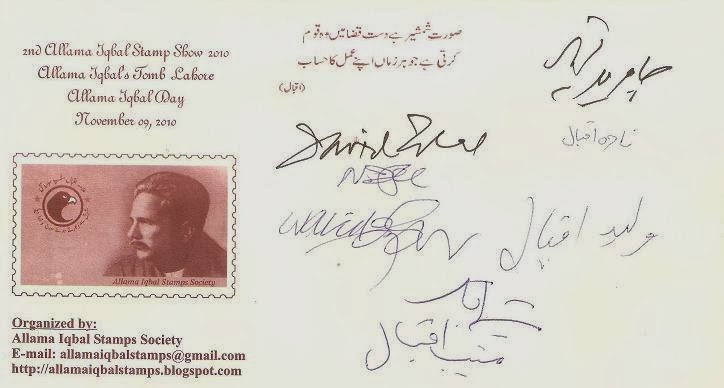 2nd Allama Iqbal Stamp Show 2010
Allama Iqbal's Tomb Lahore
Allama Iqbal Day
November 09, 2010
Allama Iqbal Stamps Society
Organized by:
Allama Iqbal Stamps Society
E-mail: allamaiqbalstamps@gmail.com
http://allamaiqbalstamps.blogspot.com
صورت شمشیر ہے دست قضا میں وہ قوم
کرتی ہے جو ہر زماں اپنے عمل کا حساب
(اقبال)
جاوید اقبال
ولید اقبال
منیب اقبال